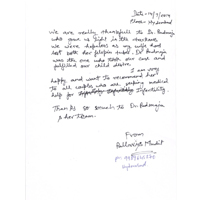 Place - Hyderabad
We are really thankfull to Dr. Padmaja
who gave us light in the darkness
we were hopeless as my wife had
lost both her fallopian tubes. Dr Padmaja
was the one who took our case and
fulfilled our child desire.
I am very
happy and want to recommend her
to all couples who are seeking medical
help for Infertility.
Thanks so much to Dr Padmaja
& her Team.
From
Hyderabad